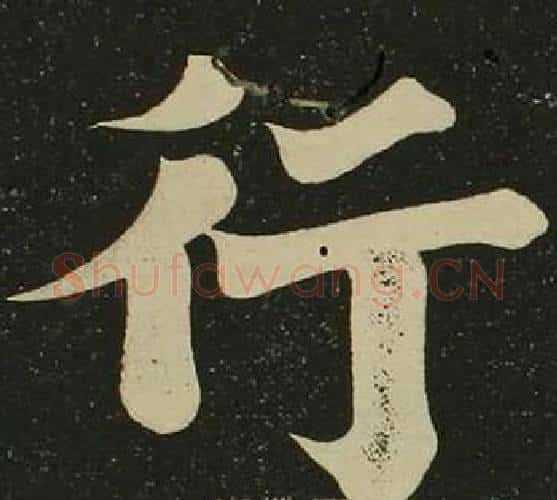 行
Shufawang.CN